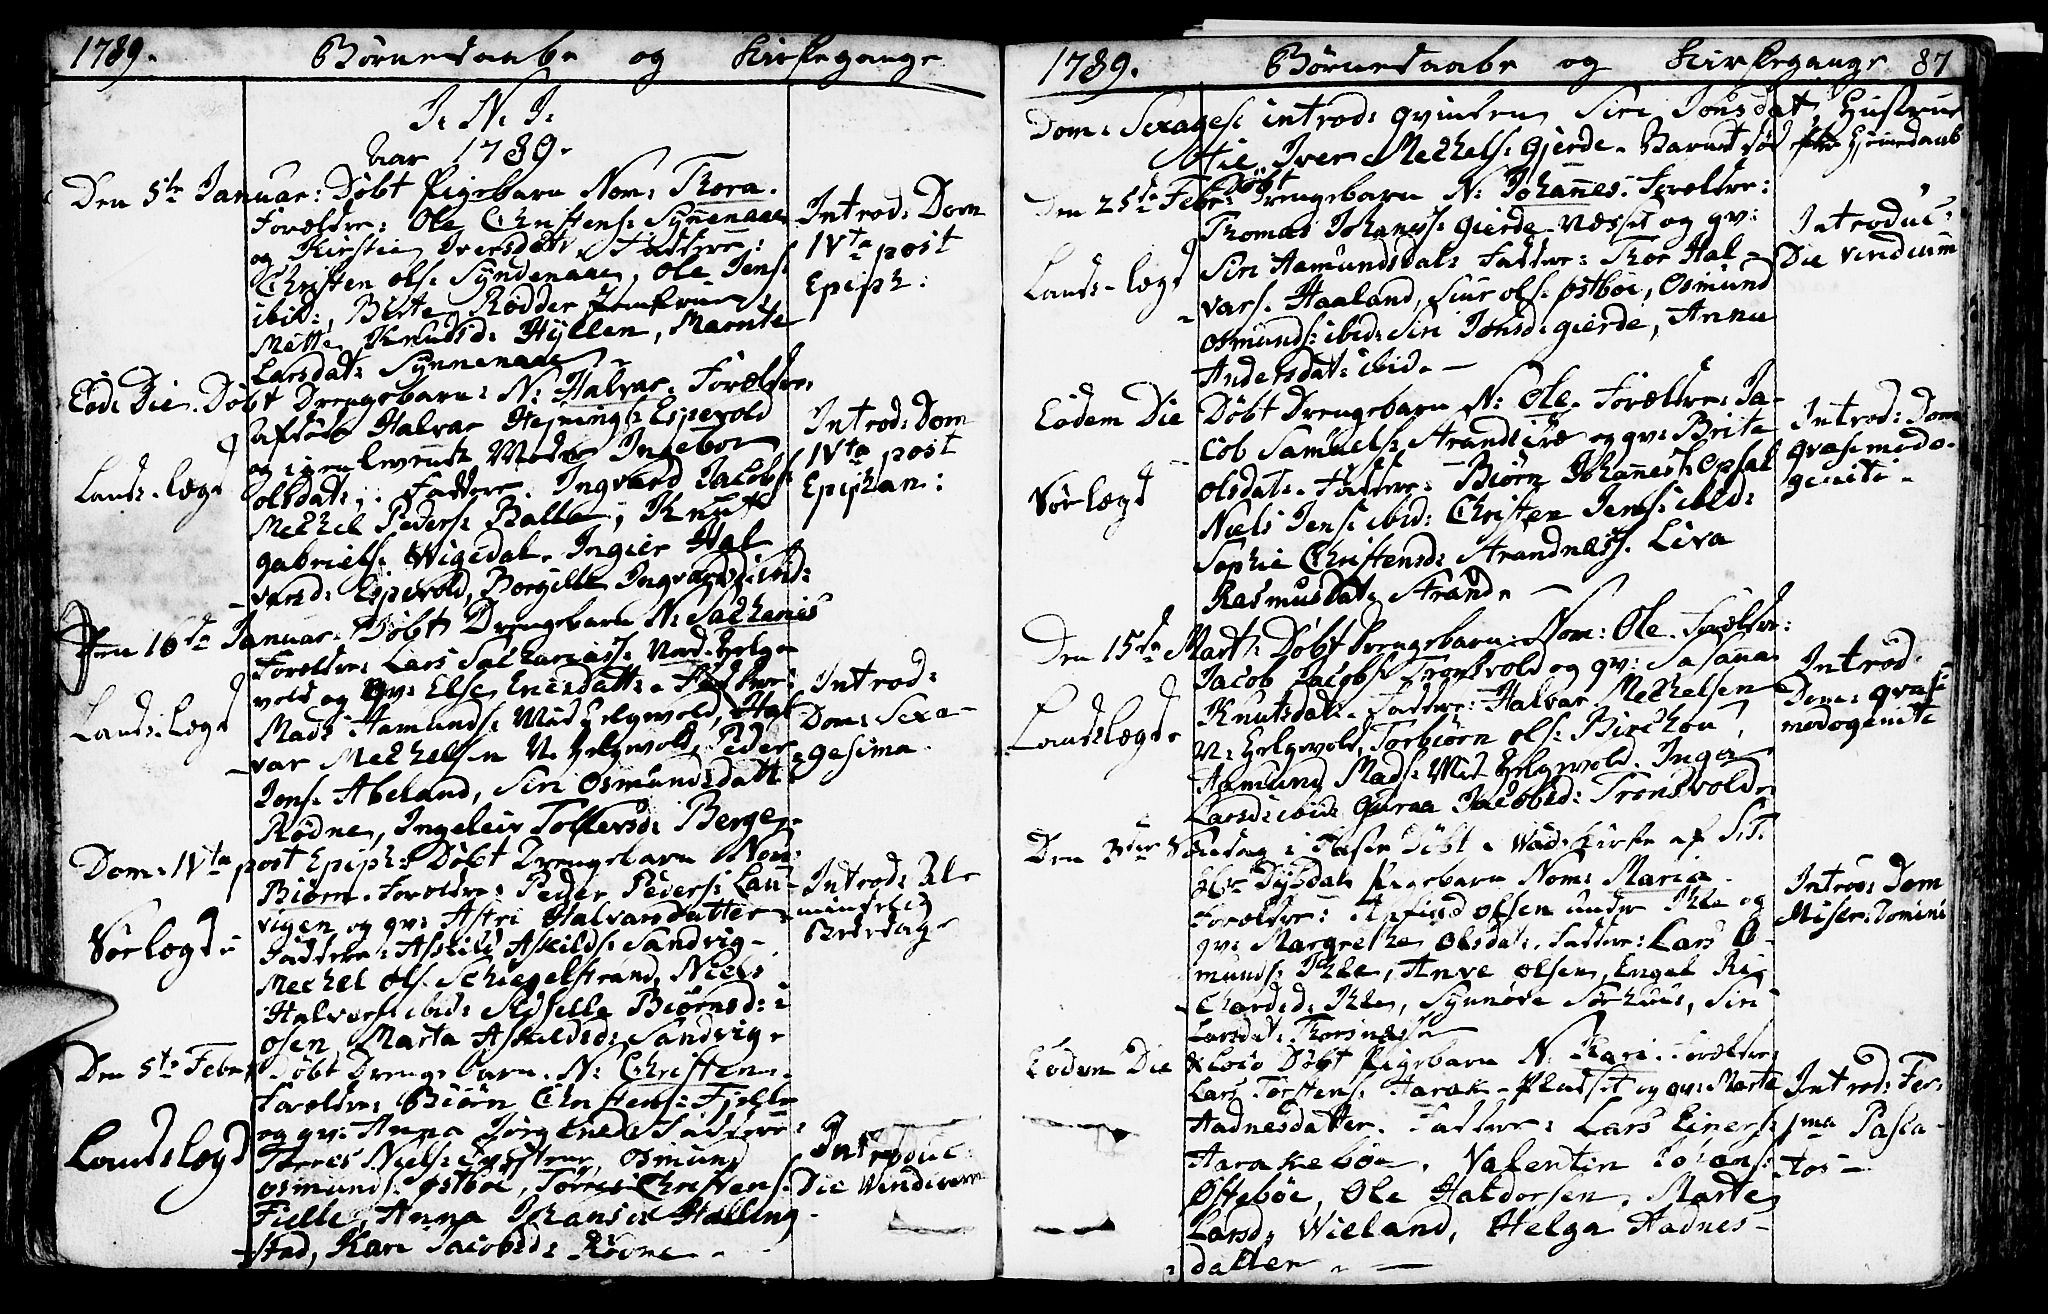 1789. Børnedaabe og Kirkegange
J. N. J.
Aar 1789.
Den 5te Januar: Døbt Pigebarn Nom: Thora.
Forældre: Ole Christens: Synnenaae
og Kirstin Iversdat: Faddere:
Christen ols: Syndenaae, Ole Jens:
ibid:, Brite Rødder,
Mette Knudsd: Hyllen, Marnte
Larsdat: Synnenaae
Introd: Dom
IVta post
Epiph:
Eod: Die. Døbt Drengebarn: N: Halvar. Forældre:
afdøde Halvar Heynings: Espevold
og igienlevende Moder Ingebor
olsdat: Faddere. Ingvard Jacobs:
Mechel Peders: Balle, Knutt
Gabriels: Wigedal. Ingier Hal
varsd: Espevold, Borgille Ingvardsd: ibid:
Lands-lægd
Introd: Dom
IVta post
Epiphan:
Den 16de Januar. Døbt Drengebarn N: Sacharias
Forældre: Lars Sachariass: Nord-Helge
vold og qv: Else Enersdatt: Faddere:
Mads Hamunds: Mid Helgevold, Hal
var Mechelsen N. Helgevold, Peder
Jons: Abeland, Siri Osmundsdatt:
Rødne, Ingeleiv Tollevsd: Berge.
Lands-Lægd
Introd:
Dom: Sexa-
gesima.
Dom: IVta post Epiph: Døbt Drengebarn Nom:
Biørn. Forældre: Peder Peders: Lau-
vigen og qv: Astri Halvarsdatter
Faddere: Askild Askilds: Sandvig-
Mechel ols: Schiegelstrand, Niels
Halvars: ibid: Sidselle Biørnsd: i
osen Marta Askeldsd: Sandvig.
Sørlægd:
Introd: Al-
mindelig
Bededag.
Den 5te Febr: Døbt Drengebarn. N: Christen.
Forældre: Biørn Christens: Fjelle
og qv: Anna Jørgensd: Faddere:
Torres Niels: Osmund
osmunds: østbøe, Torres Christens:
Fielle, Anna Johansd: Halling
stad, Kari Jacobsd: Rødne.
Landslægd
Introduc:
Die Viridium
1789. Børnedaabe og Kirkegange 87
Dom: Sexages: introd: qvinden Siri Jonsdat, Hustrue
til Iver Mechels: Gjerde. Barnet død Hjemedaab
Den 25de Febr: Døbt Drengebarn N: Johannes. Forældre:
Thomas Johanss: Gierde-Næsset og qv:
Siri Aamundsdat: Faddere: Thor Hal-
vars: Haaland, Siur ols: østbøe, Osmund
osmunds: ibid: Siri Jonsd: gierde, Anna
Andersdat: ibid. -
Lands-lægd
Introduc:
Die Viridium
Eodem Die Døbt Drengebarn N: Ole. Forældre: Ja-
cob Samuels: Strandsiøe og qv: Brite
olsdat. Faddere: Biørn Johanness: Opsal
Niels Jens: ibid: Christen Jens: ibid:
Sophie Christensd: Strandness. Liva
Rasmusdat: Strand.
Sørlægd
Introd: Dom
qvasimodo-
geniti.
Den 15de Mart: Døbt Drengebarn. Nom: Ole. Forældre:
Jacob Jacobs: Tronsvold og qv: Sasanna
Knutsdat. Faddere: Halvar Mechelsen
N: Helgevold, Torbiørn ols: Birchou,
Aamund Mads: Mid Helgevold. Inger
Larsd: ibid: Guraa Jacobsd: Tronsvold.
Landslægd.
Introd
Dom: qvasi
modogeniti
Den 3die Søndag i Faste Døbt i Wads-kirke af S:T:
Hr: Dysdal Pigebarn Nom: Maria.
Forældre: Arfind Olsen under Ihle og
qv: Margrethe Olsdat. Faddere: Lars O-
munds: Ihle, Anve Olsen, Engel Ri-
chardsd: Ihle, Synnøve Sørhuus, Siri
Larsdat: Thorsnæss
Introd: Dom
Miser: Domini
Eodem Die & loco Døbt Pigebarn N: Kari. Forældre:
Lars Torstens: Aarak-Pladset og qv: Marte
Aadnesdatter. Faddere: Lars Einers:
Aarakebøe, Valentin Johans:
Østebøe, Ole Haldorsen, Marte
Larsd: Wieland, Helga Aadnes-
datter.
Introd: Fer:
1ma Pasca-
tos